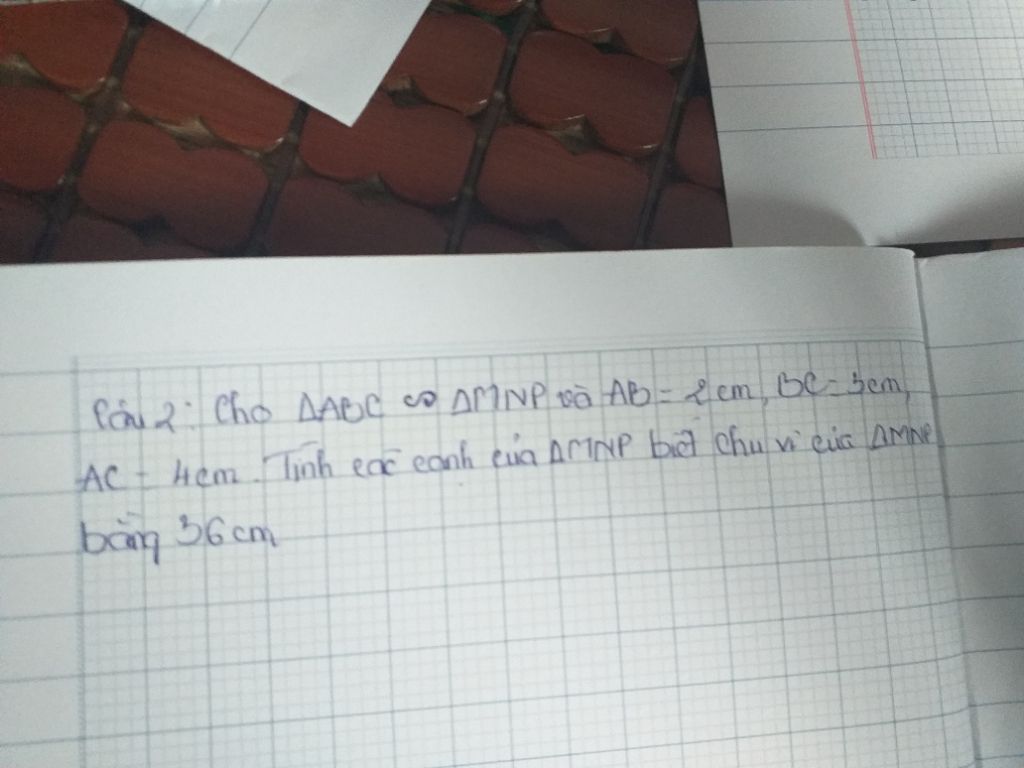 Câu 2: Cho ΔABC ∽ ΔMNP và AB = 2cm, BC = 3cm,
AC = 4cm. Tính các cạnh của ΔMNP biết chu vi của ΔMNP
bằng 36cm